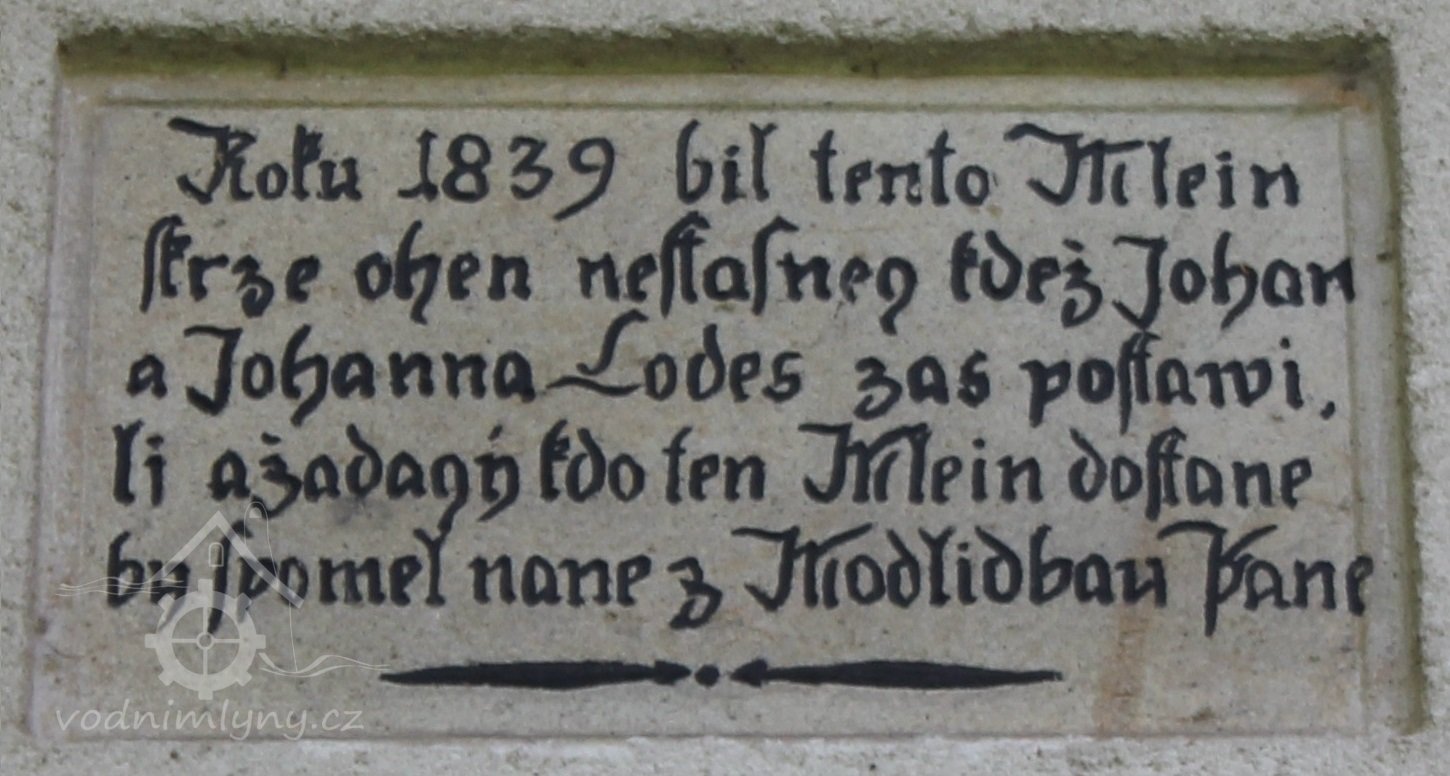 Roku 1839 bil tento Mlein
skrze ohen nestasneg kdež Johan
a Johanna Lodes zas postawi,
li ažadagý kdo ten Mlein dostane
by spomel nane z Modlidbau Pane
vodnimlyny.cz